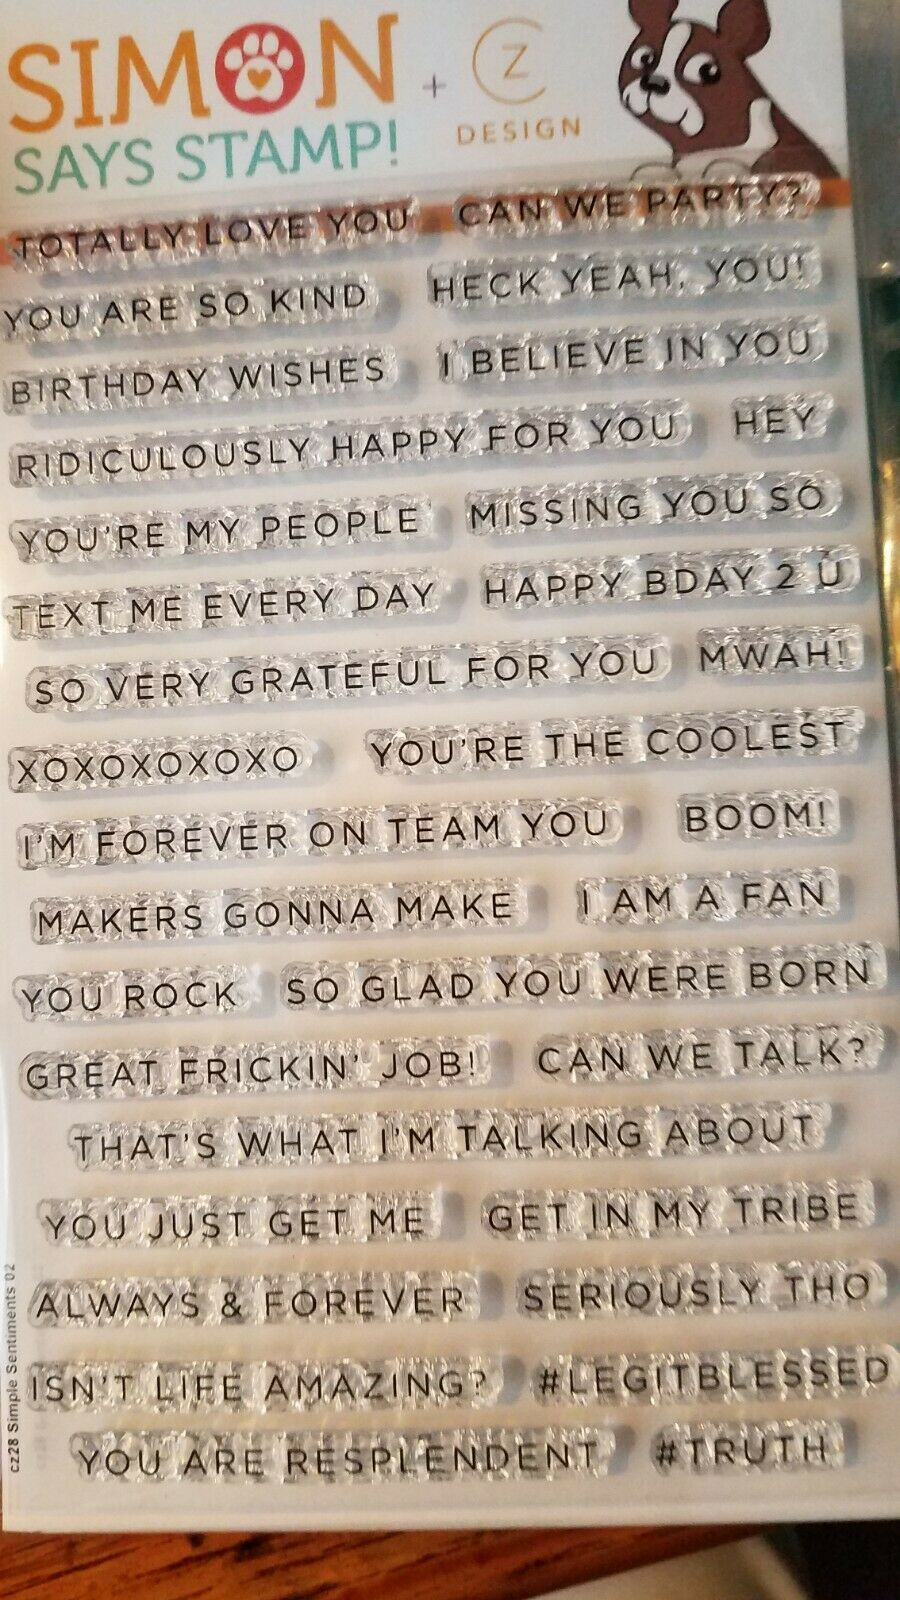 SIMON
SAYS STAMP!
+
CZ
DESIGN
TOTALLY LOVE YOU CAN WE PARTY?
YOU ARE SO KIND HECK YEAH, YOU!
BIRTHDAY WISHES I BELIEVE IN YOU
RIDICULOUSLY HAPPY FOR YOU HEY
YOU'RE MY PEOPLE MISSING YOU SO
TEXT ME EVERY DAY HAPPY BDAY 2 U
SO VERY GRATEFUL FOR YOU MWAH!
XOXOXOXOXO YOU'RE THE COOLEST
I'M FOREVER ON TEAM YOU BOOM!
MAKERS GONNA MAKE I AM A FAN
YOU ROCK SO GLAD YOU WERE BORN
GREAT FRICKIN' JOB! CAN WE TALK?
THAT'S WHAT I'M TALKING ABOUT
YOU JUST GET ME GET IN MY TRIBE
ALWAYS & FOREVER SERIOUSLY THO
ISN'T LIFE AMAZING? #LEGITBLESSED
YOU ARE RESPLENDENT #TRUTH
cz28 Simple Sentiments 02